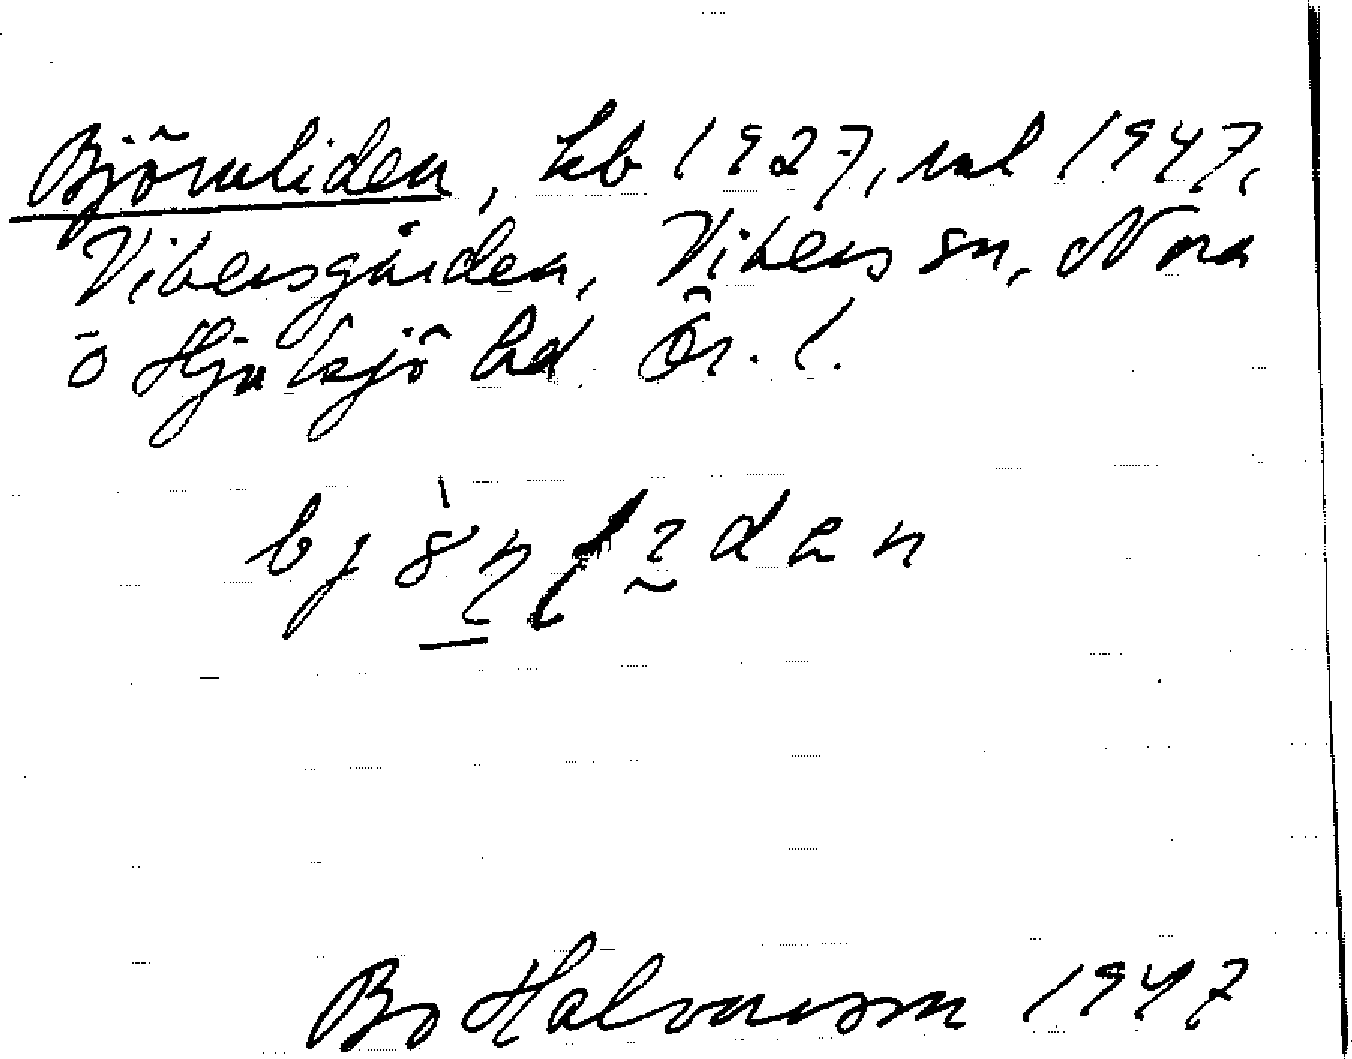 Björnliden, kb 1927, ml 1947,
Vikersgården, Vikers sn, Nora
o Hjulsjö hd Ör. l.
Bo Halvarsson 1947